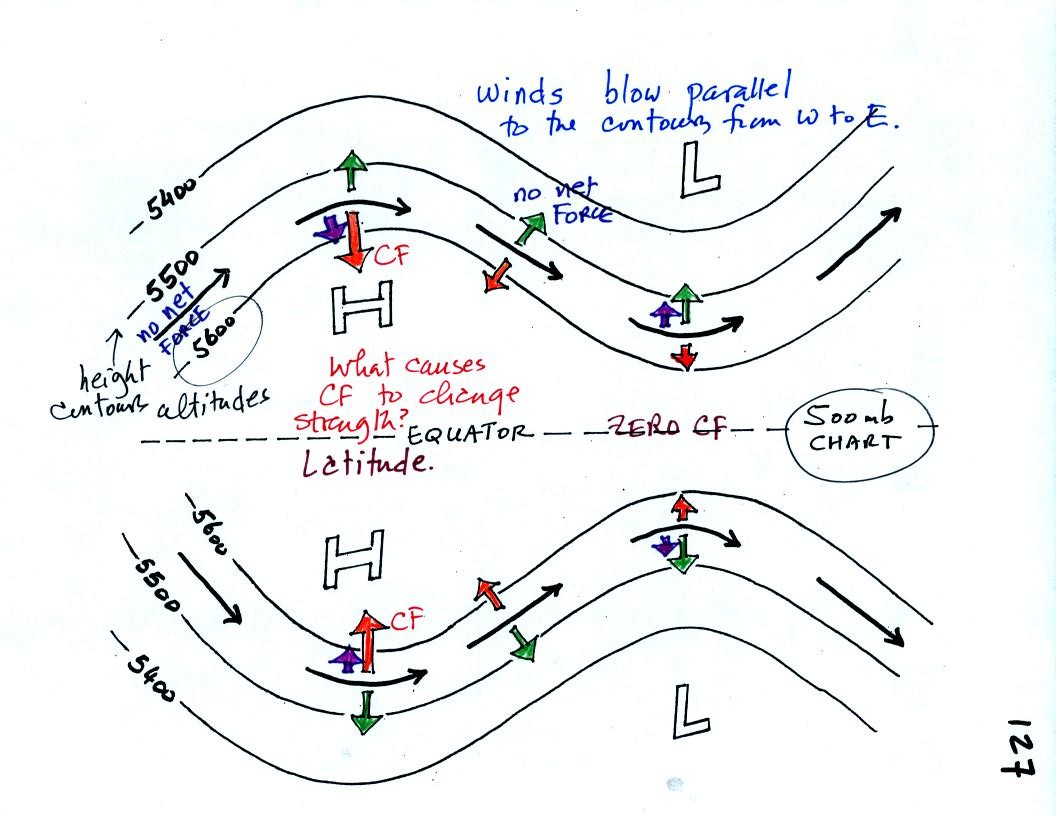 winds blow parallel
to the contours from W to E.
L
5400
no net
FORCE
CF
5500
H
no net
FORCE
5600
height
contours altitudes
What causes
CF to change
strength?
EQUATOR
ZERO CF
500 mb
CHART
Latitude.
5600
H
5500
CF
5400
L
127